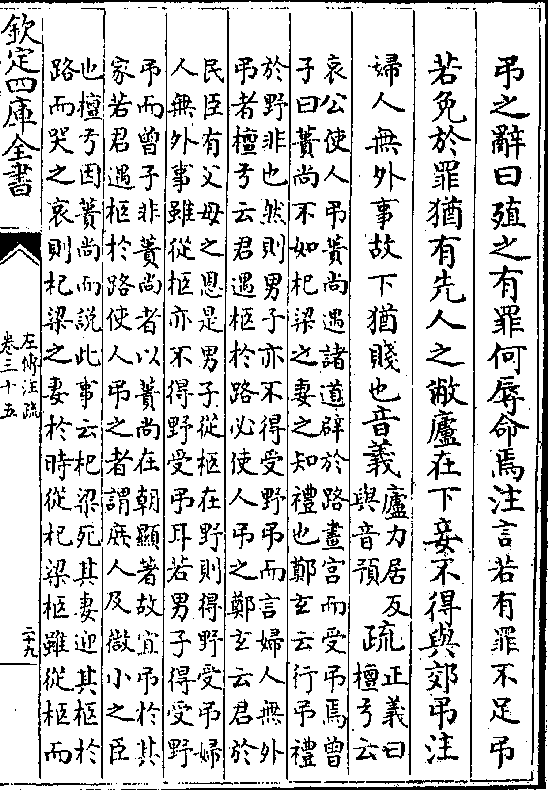 弔之辭曰殖之有罪何辱命焉注言若有罪不足弔
若免於罪猶有先人之敝廬在下妾不得與郊弔注
婦人無外事故下猶賤也音義廬力居反與音預疏正義曰檀弓云
哀公使人弔蕢尚遇諸道辟於路畫宮而受弔焉曾
子曰蕢尚不如杞梁之妻之知禮也鄭玄云行弔禮
於野非也然則男子亦不得受野弔而言婦人無外
弔者檀弓云君遇柩於路必使人弔之鄭玄云君於
民臣有父母之恩是男子從柩在野則得野受弔婦
人無外事雖從柩亦不得野受弔耳若男子得受野
弔而曾子非蕢尚者以蕢尚在朝顯著故宜弔於其
家若君遇柩於路使人弔之者謂庶人及微小之臣
也檀弓因蕢尚而說此事云杞梁死其妻迎其柩於
路而哭之哀則杞梁之妻於時從杞梁柩雖從柩而
欽定四庫全書
左傳注疏
卷三十五
二十九